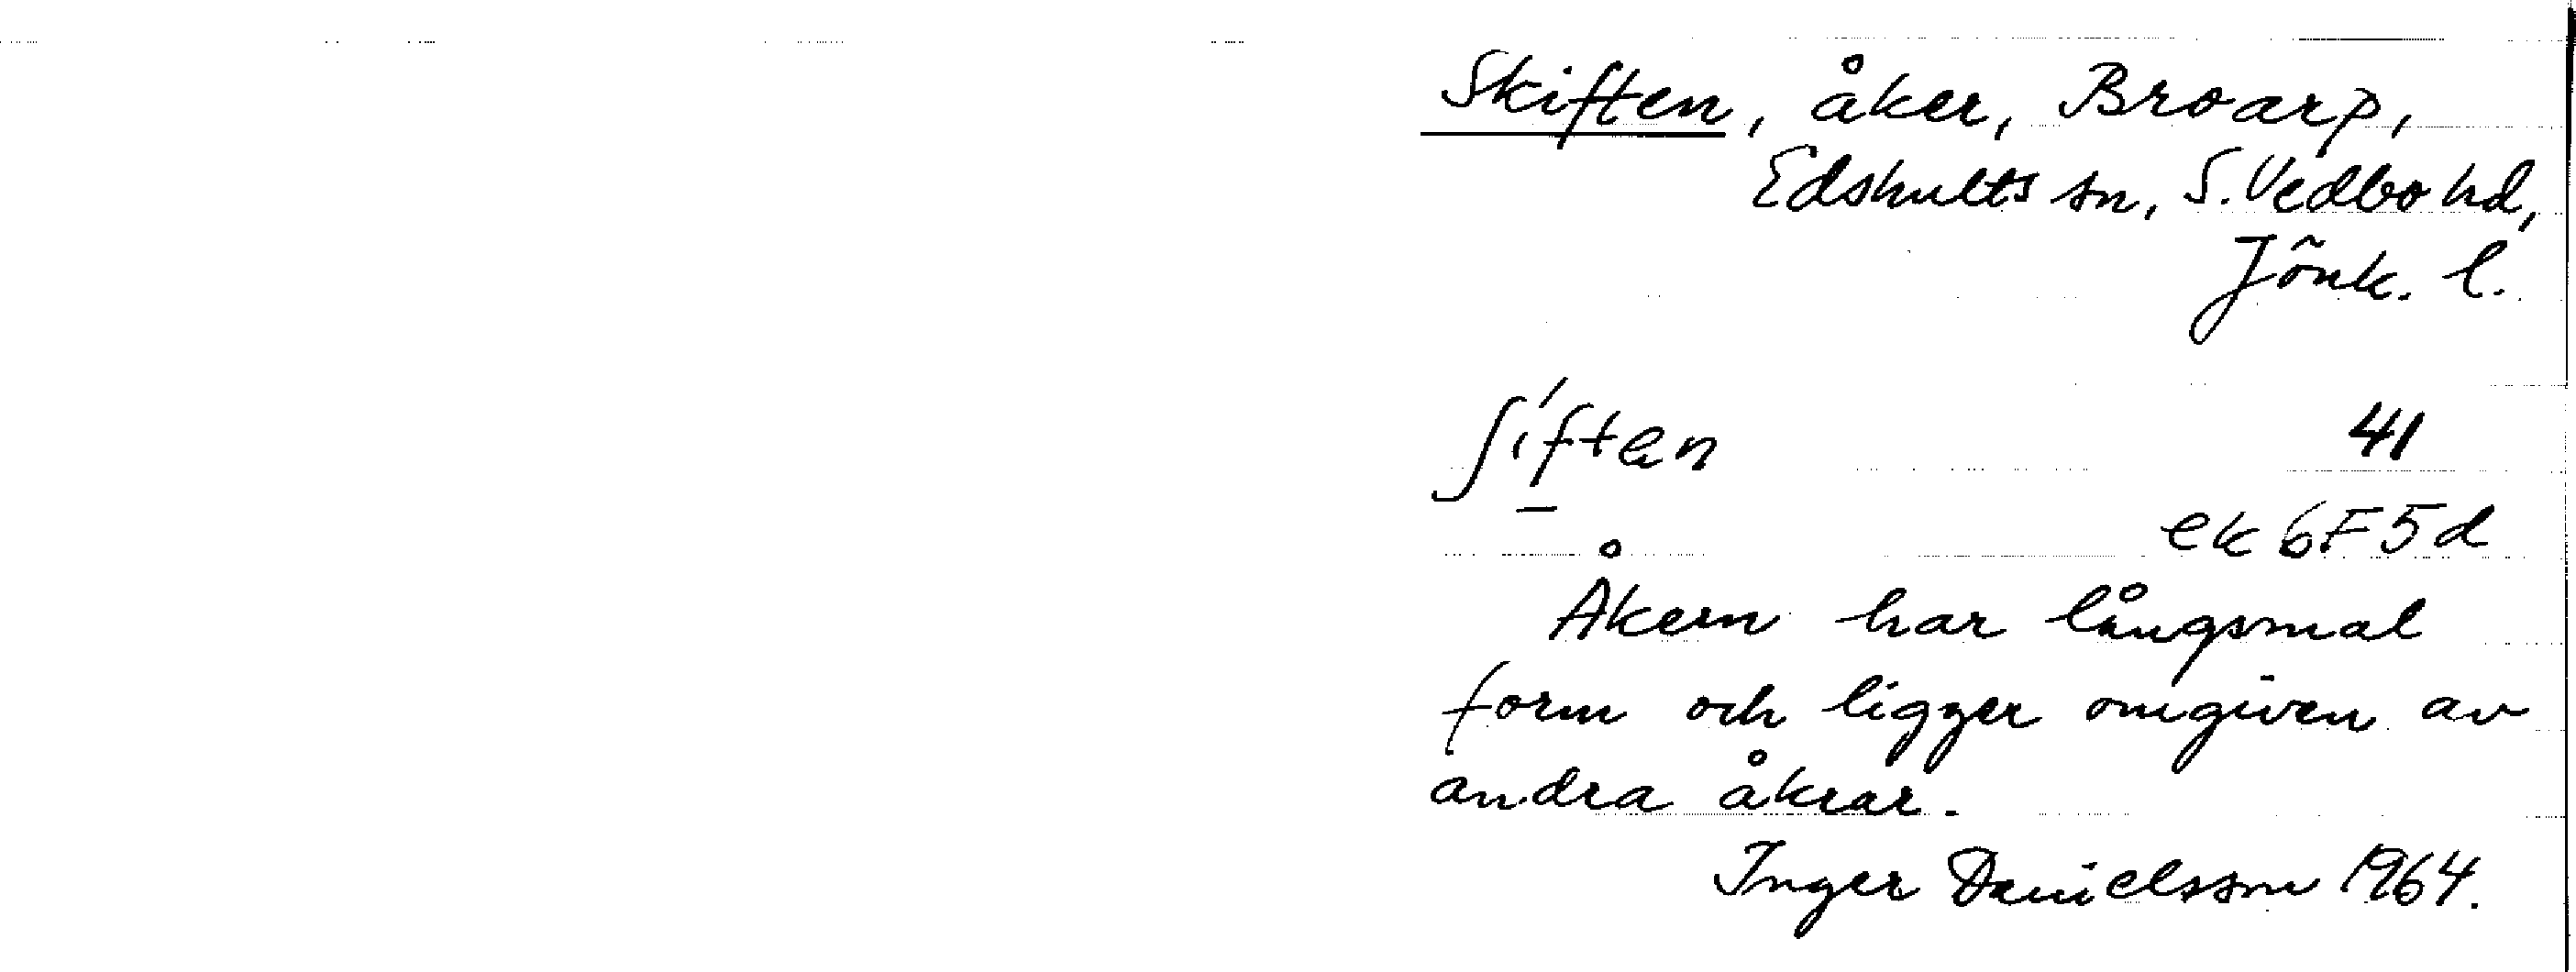 Skiften, åker, Broarp,
Edshults sn, S. Vedbo hd,
Jönk. l.
ʃíften 41
ek 6F5d
Åkern har långsmal
form och ligger omgiven av
andra åkrar.
Inger Danielsson 1964.